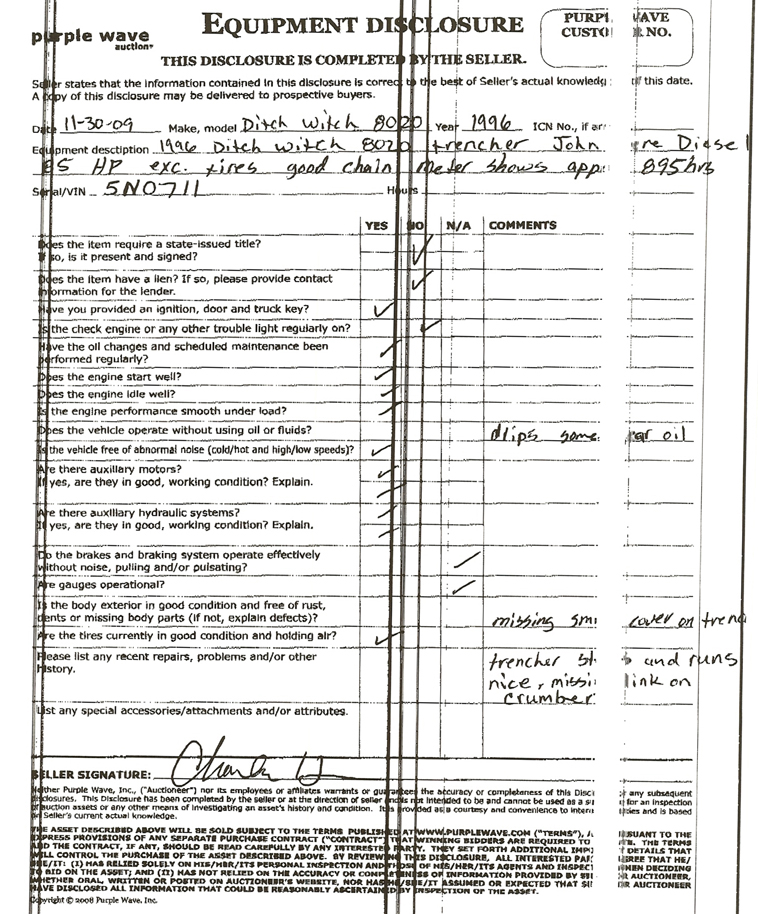 purple wave
auction
EQUIPMENT DISCLOSURE
THIS DISCLOSURE IS COMPLETED BY THE SELLER.
PURPL WAVE
CUSTO R NO.
Seller states that the information contained in this disclosure is correct to the best of Seller's actual knowledg of this date.
A copy of this disclosure may be delivered to prospective buyers.
Date 11-30-09 Make, model Ditch Witch 8020 Year 1996 ICN No., if
Equipment desctiption 1996 Ditch Witch 8020 trencher John ere Diesel
85 HP exc. tires good chain Meter shows app 895 hrs
Serial/VIN 5N0711 Hours
YES NO N/A COMMENTS
Does the item require a state-issued title?
If so, is it present and signed?
Does the item have a lien? If so, please provide contact
information for the lender.
Have you provided an ignition, door and truck key?
Is the check engine or any other trouble light regularly on?
Have the oil changes and scheduled maintenance been
performed regularly?
Does the engine start well?
Does the engine idle well?
Is the engine performance smooth under load?
Does the vehicle operate without using oil or fluids? drips some oil
Is the vehicle free of abnormal noise (cold/hot and high/low speeds)?
Are there auxiliary motors?
If yes, are they in good, working condition? Explain.
Are there auxiliary hydraulic systems?
If yes, are they in good, working condition? Explain.
Do the brakes and braking system operate effectively
without noise, pulling and/or pulsating?
Are gauges operational?
Is the body exterior in good condition and free of rust,
dents or missing body parts (if not, explain defects)? missing sm cover on trenc
Are the tires currently in good condition and holding air?
Please list any recent repairs, problems and/or other trencher st s and runs
history. nice, missi link on
crumber
List any special accessories/attachments and/or attributes.
SELLER SIGNATURE:
Neither Purple Wave, Inc., ("Auctioneer") nor its employees or affiliates warrants or guarantees the accuracy or completeness of this Discl any subsequent
disclosures. This Disclosure has been completed by the seller or at the direction of seller and is not intended to be and cannot be used as a su for an inspection
of auction assets or any other means of investigating an asset's history and condition. It is provided as a courtesy and convenience to intere ties and is based
on Seller's current actual knowledge.
THE ASSET DESCRIBED ABOVE WILL BE SOLD SUBJECT TO THE TERMS PUBLISHED AT WWW.PURPLEWAVE.COM ("TERMS"), RSUANT TO THE
EXPRESS PROVISIONS OF ANY SEPARATE PURCHASE CONTRACT ("CONTRACT") THAT WINNING BIDDERS ARE REQUIRED TO TE. THE TERMS
AND THE CONTRACT, IF ANY, SHOULD BE READ CAREFULLY BY ANY INTERESTED PARTY. THEY SET FORTH ADDITIONAL IMP DETAILS THAT
WILL CONTROL THE PURCHASE OF THE ASSET DESCRIBED ABOVE. BY REVIEWING THIS DISCLOSURE, ALL INTERESTED PAR GREE THAT HE/
SHE/IT: (I) HAS RELIED SOLELY ON HIS/HER/ITS PERSONAL INSPECTION AND THOSE OF HIS/HER/ITS AGENTS AND INSPECT HEN DECIDING
TO BID ON THE ASSET; AND (II) HAS NOT RELIED ON THE ACCURACY OR COMPLETENESS OF INFORMATION PROVIDED BY SE R AUCTIONEER,
WHETHER ORAL, WRITTEN OR POSTED ON AUCTIONEER'S WEBSITE, NOR HAS HE/SHE/IT ASSUMED OR EXPECTED THAT SE R AUCTIONEER
HAVE DISCLOSED ALL INFORMATION THAT COULD BE REASONABLY ASCERTAINED BY INSPECTION OF THE ASSET.
Copyright © 2008 Purple Wave, Inc.